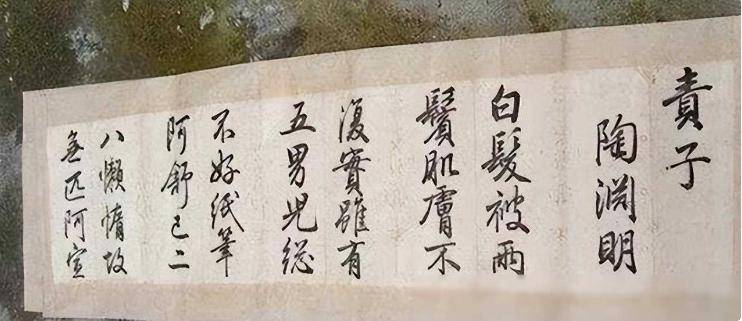 責子
陶淵明
白髮被兩
鬢肌膚不
復實雖有
五男兒総
不好紙筆
阿舒已二
八懶惰故
無匹阿宣